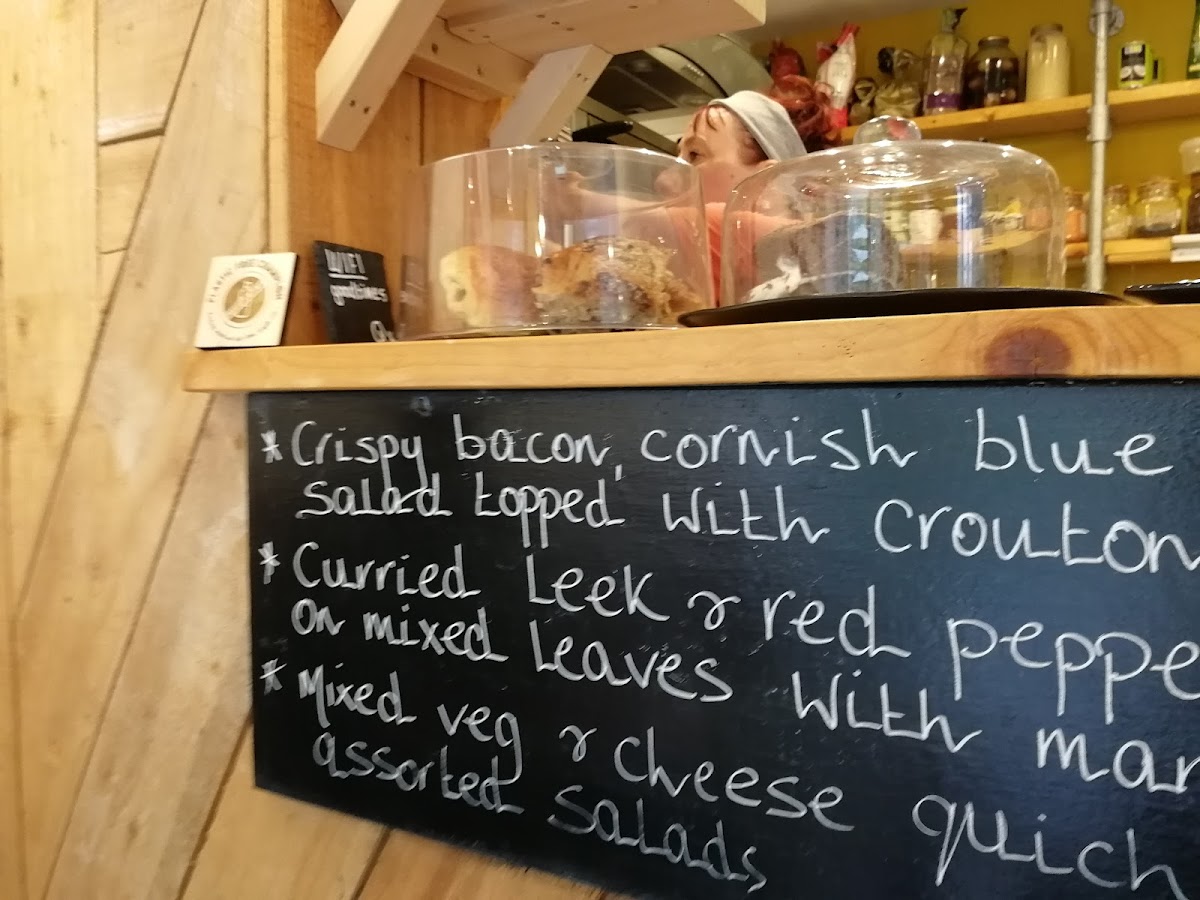 WIFI
goodtimes
* Crispy bacon, cornish blue
salad topped with crouton
* Curried leek & red peppe
on mixed leaves with mar
* Mixed veg & cheese quich
assorted salads